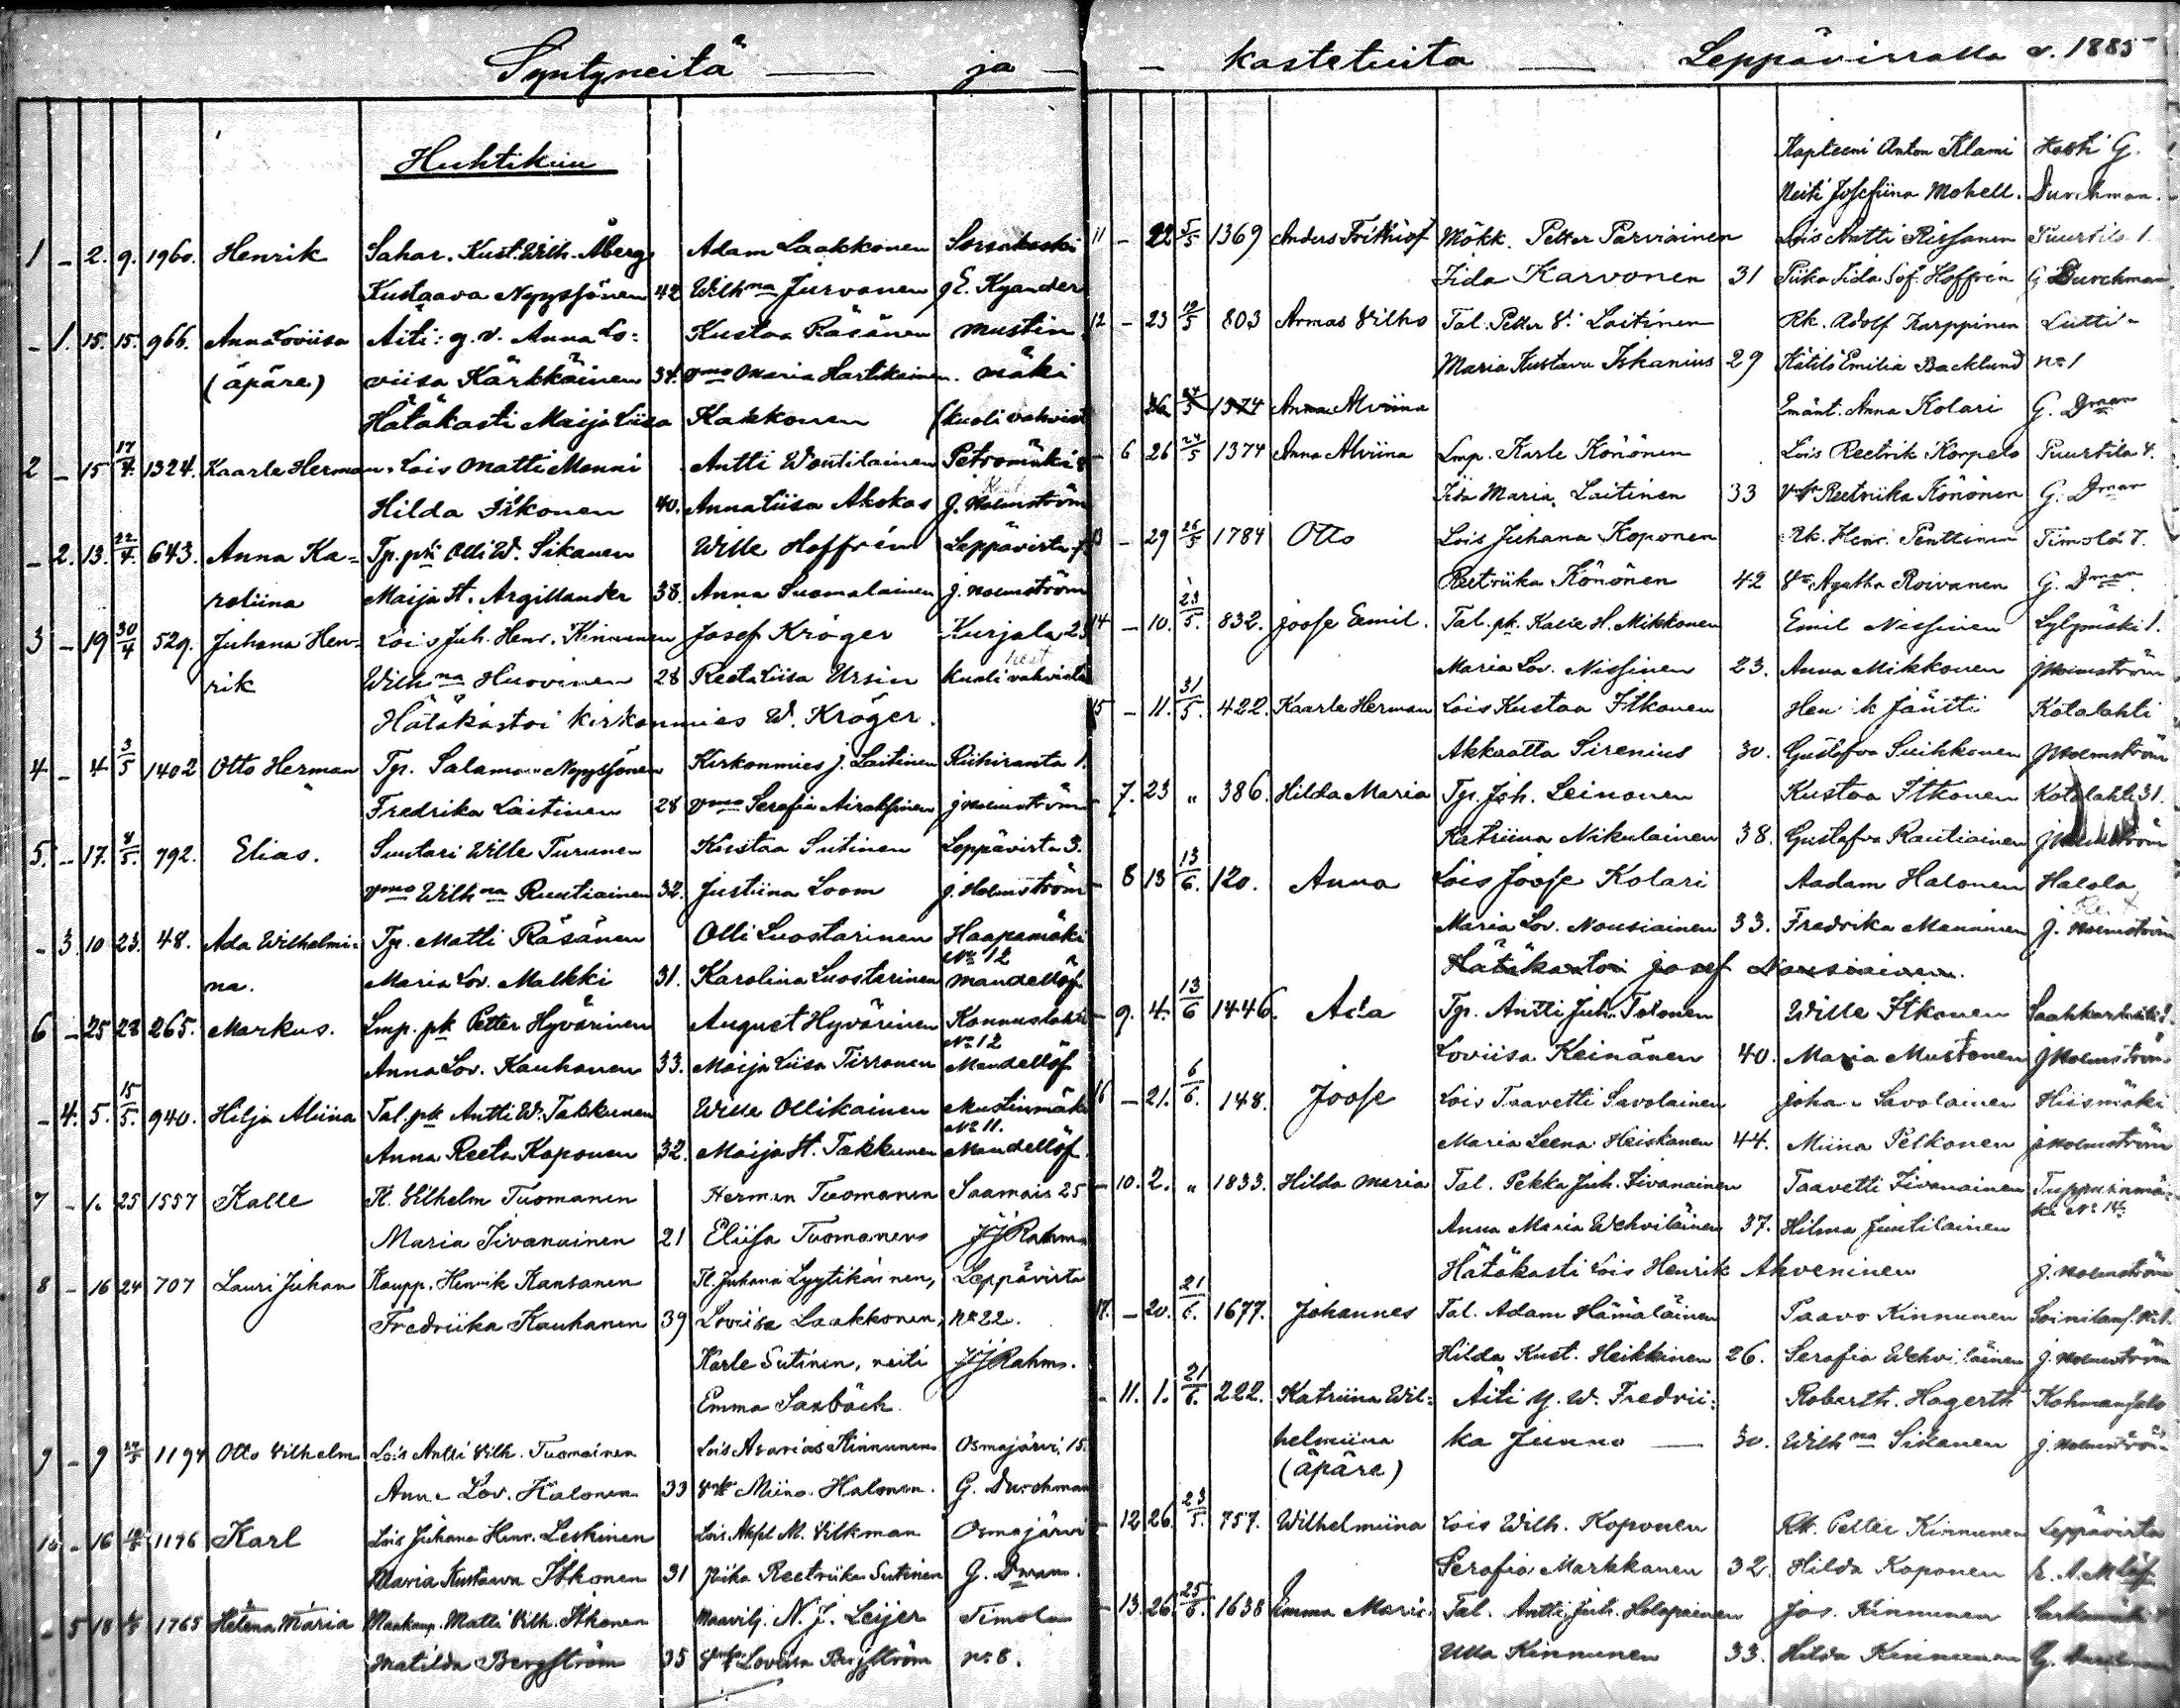 Syntyneitä — ja —
Huhtikuu
1 - 2. 9. 1960. Henrik Sahar. Kust. Wilh. Åberg Adam Laakkonen Sorsakoski
Kustaava Nyyssönen 42 Wilhna Jurvanen g E. Kyander
- 1. 15. 15. 966. Anna Loviisa Äiti: g. v. Anna Lo= Kustaa Räsänen Mustin
(äpäre) viisa Kärkkäinen 34. vmo Maria Hartikainen. mäki
Hätäkasti Maija Liisa Kakkonen (kuoli vahvist
2 - 15 17/4. 1324. Kaarle Herman. Lois Matti Monni Antti Wentilainen Petromäki
Hilda Itkonen 40. Anna Liisa Akokas J. Holmström
- 2. 13. 22/4. 643. Anna Ka= Tp. pk Olli W. Sikanen Wille Hoffrén Leppävirta
roliina Maija St. Argillander 38. Anna Suomalainen J. Holmström
3 - 19 30/4 529. Juhana Hen= Lois Juh. Henr. Kinnunen Josef Kröger Kurjala 23
rik Wilhna Huovinen 28 Reeta Liisa Ursin kuoli vahvista
Hätäkastoi kirkonmies W. Kröger.
4 - 4 3/5 1402 Otto Herman Tp. Salamon Nyyssönen Kirkonmies J. Laitinen Riihiranta 1.
Fredrika Laitinen 28 vmo Serafia Airaksinen J Holmström
5. - 17. 4/5. 792. Elias. Suutari Wille Turunen Kustaa Sutinen Leppävirta 3.
vmo Wilhna Ruutiainen 32. Justiina Loom J. Holmström
- 3. 10 23. 48. Ada Wilhelmi= Tp. Matti Räsänen Olli Luostarinen Haapamäki
No 12
na. Maria Lov. Malkki 31. Karolina Luostarinen Mandellöf
6 - 25 28 265. Markus. Lmp. pk Petter Hyvärinen August Hyvärinen Konnuslahti
No 12
Anna Lov. Kauhanen 33. Maija Liisa Tirronen Mandellöf
- 4. 5. 15/5. 940. Hilja Aliina Tal. pk Antti W. Takkunen Wille Ollikainen Mustinmäki
No 11.
Anna Reeta Koponen 32. Maija St. Takkunen Mandellöf
7 - 1. 25 1557 Kalle Tl. Vilhelm Tuomanen Herman Tuomanen Saamais 25
Maria Iivanainen 21 Eliisa Tuomanen JJ Rahm
8 - 16 24 707 Lauri Juhan Kaupp. Henrik Kansanen Tl. Juhana Lyytikäinen, Leppävirta
Fredriika Kauhanen 39 Loviisa Laakkonen, No 22.
Karle Sutinen, neiti JJ Rahm.
Emma Saxbäck.
9 - 9 1194 Otto Vilhelm Lois Antti Vilh. Tuomainen Lois Asarias Kinnunen Osmajärvi 15.
Anna Lov. Halonen 33 Miina Halonen. G. Durchman
10 - 16 1176 Karl Lois Juhana Henr. Leskinen Lois. Aksel M. Vilkman Osmajärvi
Maria Kustaava Itkonen 31 Piika Reetriika Sutinen G. Dman.
- 5 18 1765 Helena Maria Maakaup. Matti Vilh. Itkonen Maavilj. N. J. Leijer Timola
Matilda Bergström 35 Loviisa Bergström No 8.
— kastetuita — Leppävirralla v. 1885
Kapteeni Anton Klami Koski G.
Neiti Josefiina Mohell. Durchman.
11 - 22 5/5 1369 Anders Frithiof Mökk. Petter Parviainen Lois Antti Rissanen Puurtila 1.
Iida Karvonen 31 Piika Iida Sof. Hoffrén G Durchman
12 - 23 19/5 803 Armas Vilho Tal. Petter V. Laitinen Rk. Adolf Karppinen Lutti-
Maria Kustava Iskanius 29 Kätilö Emilia Backlund No 1
26 24/5 1374 Anna Alviina Emänt. Anna Kolari G. Dman
- 6 26 24/5 1374 Anna Alviina Lmp. Karle Könönen Lois Reetrik Korpela Puurtila 4.
Iida Maria Laitinen 33 Reetriika Könönen G. Dman
13 - 29 25/5 1784 Otto Lois Juhana Koponen Rk. Henr. Penttinen Timola 7.
Reetriika Könönen 42 Agatha Roivanen G. Dman.
14 - 10. 23/5. 832. Joose Eemil. Tal. pk. Kalle H. Mikkonen Emil Nissinen Lylymäki 1.
Maria Lov. Nissinen 23. Anna Mikkonen J Holmström
15 - 11. 31/5. 422. Kaarle Herman Lois Kustaa Itkonen Henrik Jäntti Kotalahti
Akkaatta Sirenius 30. Gustafva Suihkonen J Holmström
- 7. 23 " 386. Hilda Maria Tp. Joh. Leinonen Kustaa Itkonen Kotalahti 31.
Katriina Nikulainen 38. Gustafva Rautiainen J Holmström
- 8 13 13/6. 120. Anna Lois Joose Kolari Aadam Halonen Halola
Maria Lov. Nousiainen 33. Fredrika Manninen J. Holmström
Hätäkastoi Josef Nousiainen.
- 9. 4. 13/6 1446. Ada Tp. Antti Juh. Tolonen Wille Itkonen Saahkarlahti
Loviisa Keinänen 40. Maria Mustonen J Holmström
16 - 21. 6/6. 148. Joose Lois Taavetti Savolainen Johan Savolainen Hiismäki
Maria Leena Heiskanen 44. Miina Pelkonen J Holmström
- 10. 2. " 1833. Hilda Maria Tal. Pekka Juh. Iivanainen Taavetti Iivanainen Tuppurinmä=
ki No 14.
Anna Maria Wehviläinen 37. Hilma Juntilainen
Hätäkasti Lois Henrik Ahveninen J. Holmström
17. - 20. 21/6. 1677. Johannes Tal. Adam Hämäläinen Paavo Kinnunen
Hilda Kust. Heikkinen 26. Serafia Wehviläinen J. Holmström
- 11. 1. 21/6. 222. Katriina Wil= Äiti y. w. Fredrii= Roberth. Hagerth
helmiina ka Junno — 30. Wilhna Sikanen J. Holmström
(äpäre)
- 12 26. 23/5. 757. Wilhelmiina Lois Wilh. Koponen Rk. Petter Kinnunen Leppävirta
Serafia Markkanen 32. Hilda Koponen
- 13. 26. 25/6. 1638 Emma Maria. Tal. Antti Juh. Holopainen Jos. Kinnunen
Ulla Kinnunen 33. Hilda Kinnunen G.